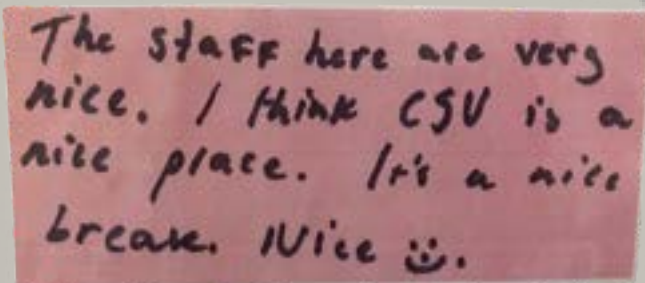 The staff here are very
nice. I think CSU is a
nice place. It's a nice
break. Nice ☺.